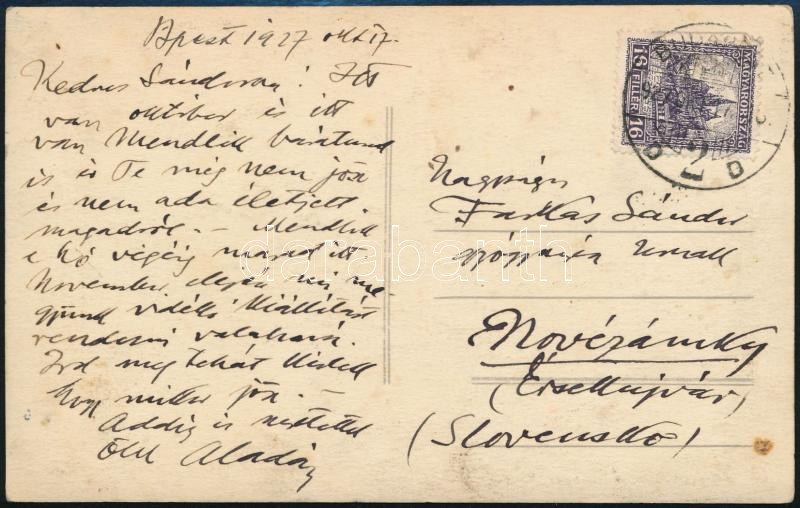 Bpest 1927 okt 17.
Kedves Sándorom! Itt
van október és itt
van Mendlik barátunk
is és Te még nem jösz
és nem adsz életjelt
magadról. – Mendlik
e hó végéig marad itt.
November elején mi me-
gyünk vidéki kiállítást
rendezni
Ird meg tehát kérlek
hogy mikor jösz. –
Addig is
ölel Aladár
MAGYARORSZÁG
16 FILLÉR 16
Nagyságos
Farkas Sándor
urnak
Novézámky
(Érsekujvár)
(Slovensko)
darabanth